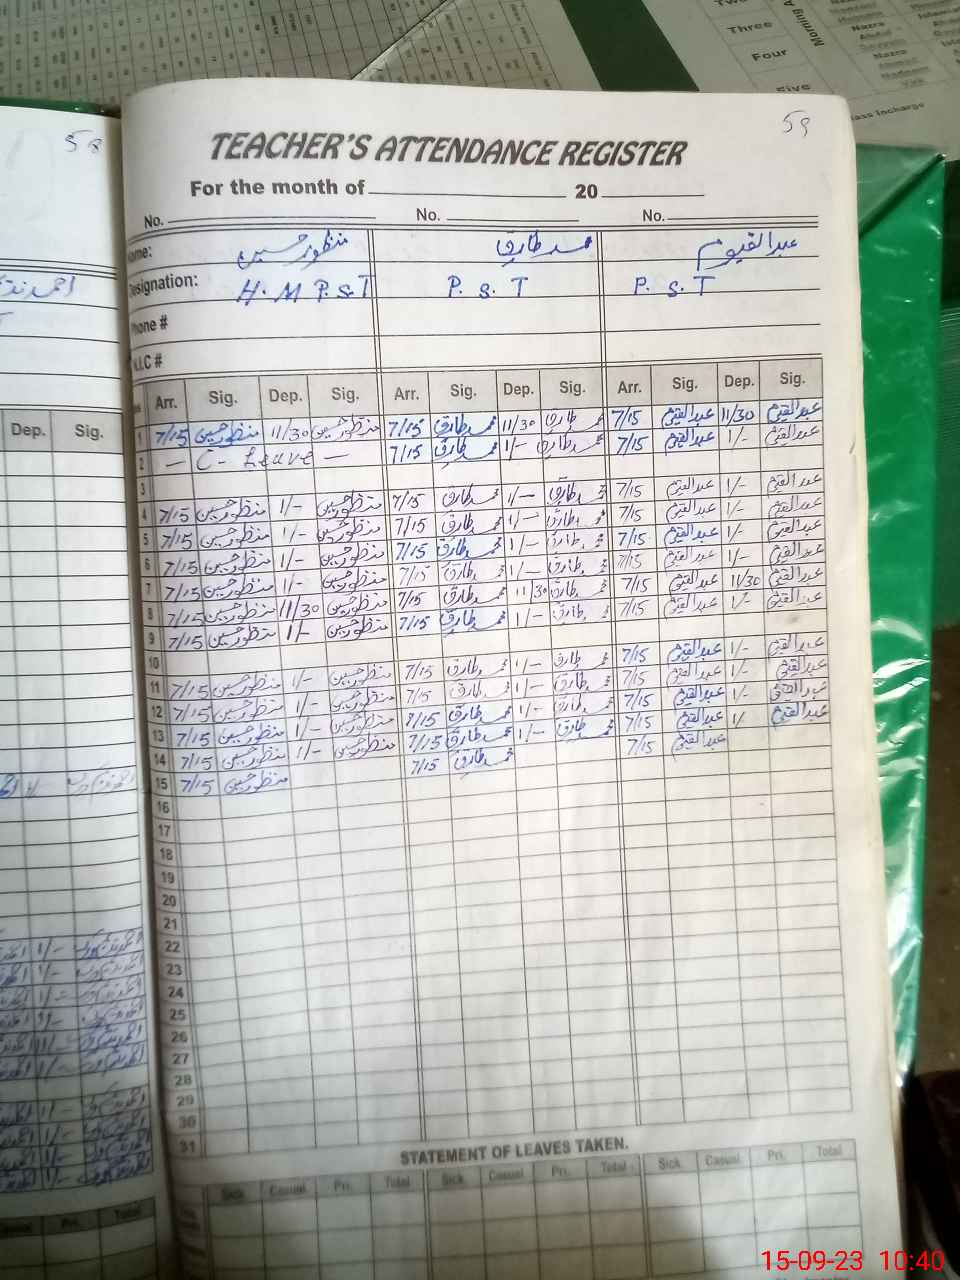 59
TEACHER'S ATTENDANCE REGISTER
For the month of 20
No. No. No.
Name: منظور حسین محمد طارق عبدالقیوم
Designation: H.M P.S.T P.S.T P.S.T
Phone #
N.I.C #
Arr. Sig. Dep. Sig. Arr. Sig. Dep. Sig. Arr. Sig. Dep. Sig.
1 7/15 منظور حسین 11/30 منظور حسین 7/15 محمد طارق 11/30 محمد طارق 7/15 عبدالقیوم 11/30 عبدالقیوم
2 — C - Leave — 7/15 محمد طارق 1/- محمد طارق 7/15 عبدالقیوم 1/- عبدالقیوم
3
4 7/15 منظور حسین 1/- منظور حسین 7/15 محمد طارق 1/- محمد طارق 7/15 عبدالقیوم 1/- عبدالقیوم
5 7/15 منظور حسین 1/- منظور حسین 7/15 محمد طارق 1/- محمد طارق 7/15 عبدالقیوم 1/- عبدالقیوم
6 7/15 منظور حسین 1/- منظور حسین 7/15 محمد طارق 1/- محمد طارق 7/15 عبدالقیوم 1/- عبدالقیوم
7 7/15 منظور حسین 1/- منظور حسین 7/15 محمد طارق 1/- محمد طارق 7/15 عبدالقیوم 1/- عبدالقیوم
8 7/15 منظور حسین 11/30 منظور حسین 7/15 محمد طارق 11/30 محمد طارق 7/15 عبدالقیوم 11/30 عبدالقیوم
9 7/15 منظور حسین 1/- منظور حسین 7/15 محمد طارق 1/- محمد طارق 7/15 عبدالقیوم 1/- عبدالقیوم
10
11 7/15 منظور حسین 1/- منظور حسین 7/15 محمد طارق 1/- محمد طارق 7/15 عبدالقیوم 1/- عبدالقیوم
12 7/15 منظور حسین 1/- منظور حسین 7/15 محمد طارق 1/- محمد طارق 7/15 عبدالقیوم 1/- عبدالقیوم
13 7/15 منظور حسین 1/- منظور حسین 7/15 محمد طارق 1/- محمد طارق 7/15 عبدالقیوم 1/- عبدالقیوم
14 7/15 منظور حسین 1/- منظور حسین 7/15 محمد طارق 1/- محمد طارق 7/15 عبدالقیوم 1/- عبدالقیوم
15 7/15 منظور حسین 7/15 محمد طارق 7/15 عبدالقیوم
16
17
18
19
20
21
22
23
24
25
26
27
28
29
30
31
STATEMENT OF LEAVES TAKEN.
Sick Casual Pri. Total Sick. Casual Pri. Total Sick Casual Pri. Total
58
Dep. Sig.
Pri. Total
Three
Four
Five
Morning
Class Incharge
15-09-23 10:40